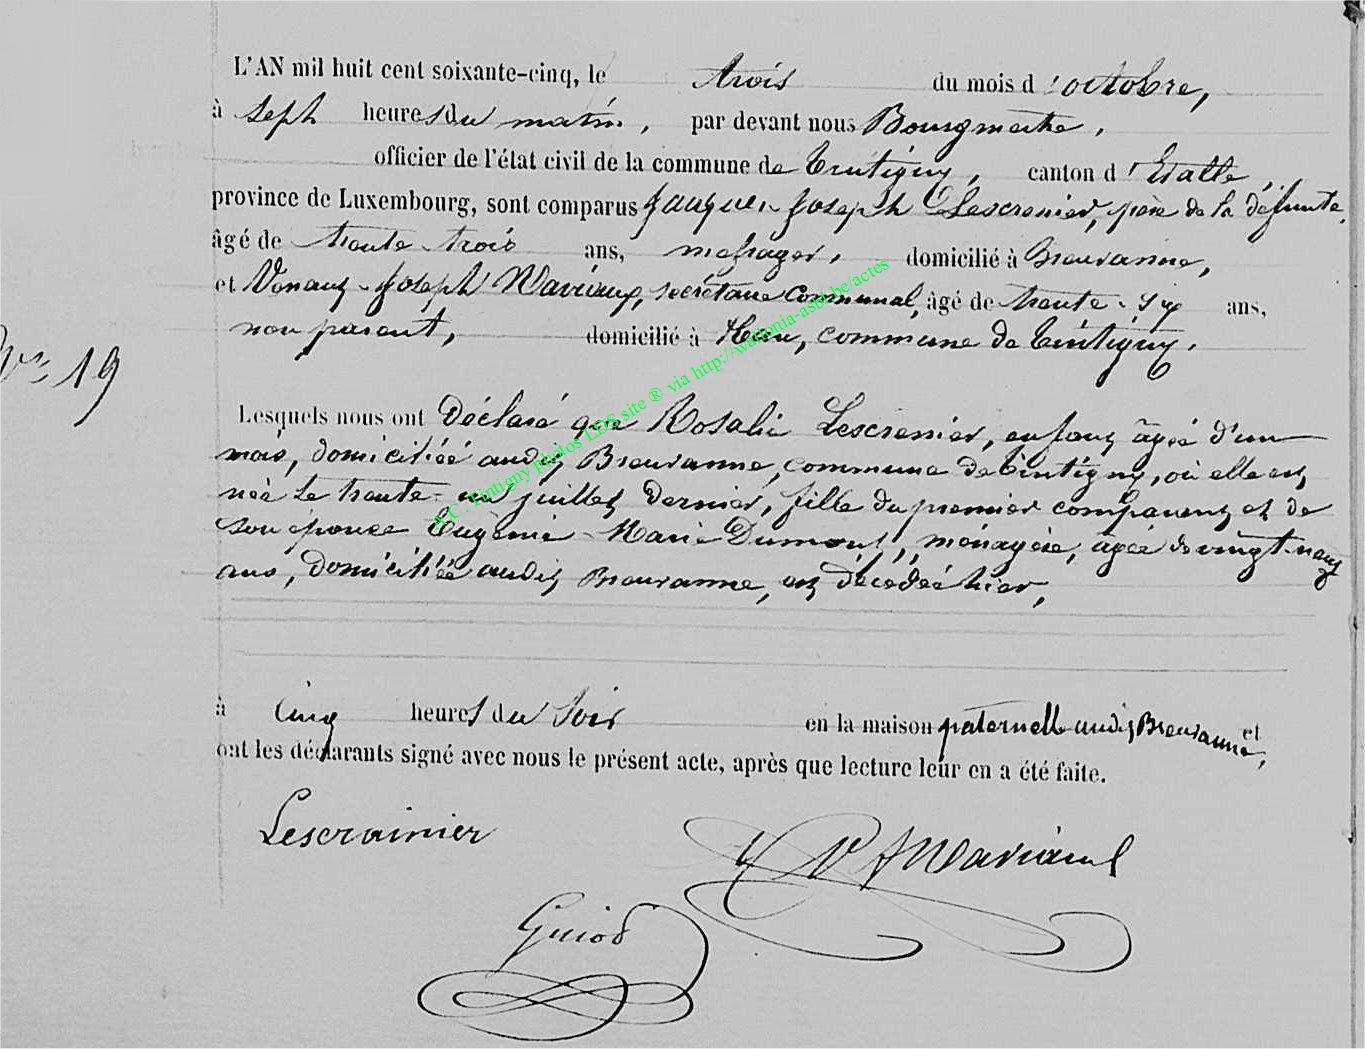 L'AN mil huit cent soixante-cinq, le trois du mois d'octobre,
à sept heures du matin, par devant nous Bourgmestre,
officier de l'état civil de la commune de Tintigny, canton d'Etalle,
province de Luxembourg, sont comparus Jacques-Joseph Lescrenier, père de la défunte,
âgé de trente-trois ans, messager, domicilié à Breuvanne,
et Venant-Joseph Mariaux, secrétaire communal, âgé de trente-six ans,
non parent, domicilié à Han, commune de Tintigny.
N° 19
Lesquels nous ont déclaré que Rosalie Lescrenier, enfant âgée d'un
mois, domiciliée audit Breuvanne, commune de Tintigny, où elle est
née le trente-un juillet dernier, fille du premier comparant et de
son épouse Eugénie-Marie Dumont, ménagère, âgée de vingt-neuf
ans, domiciliée audit Breuvanne, est décédée hier,
à cinq heures du soir en la maison paternelle audit Breuvanne, et
ont les déclarants signé avec nous le présent acte, après que lecture leur en a été faite.
Lescrainier
VJMariaux
Guiod
A.C. Tintigny photos LDS site ® via http://wallonia-asbl.be/actes